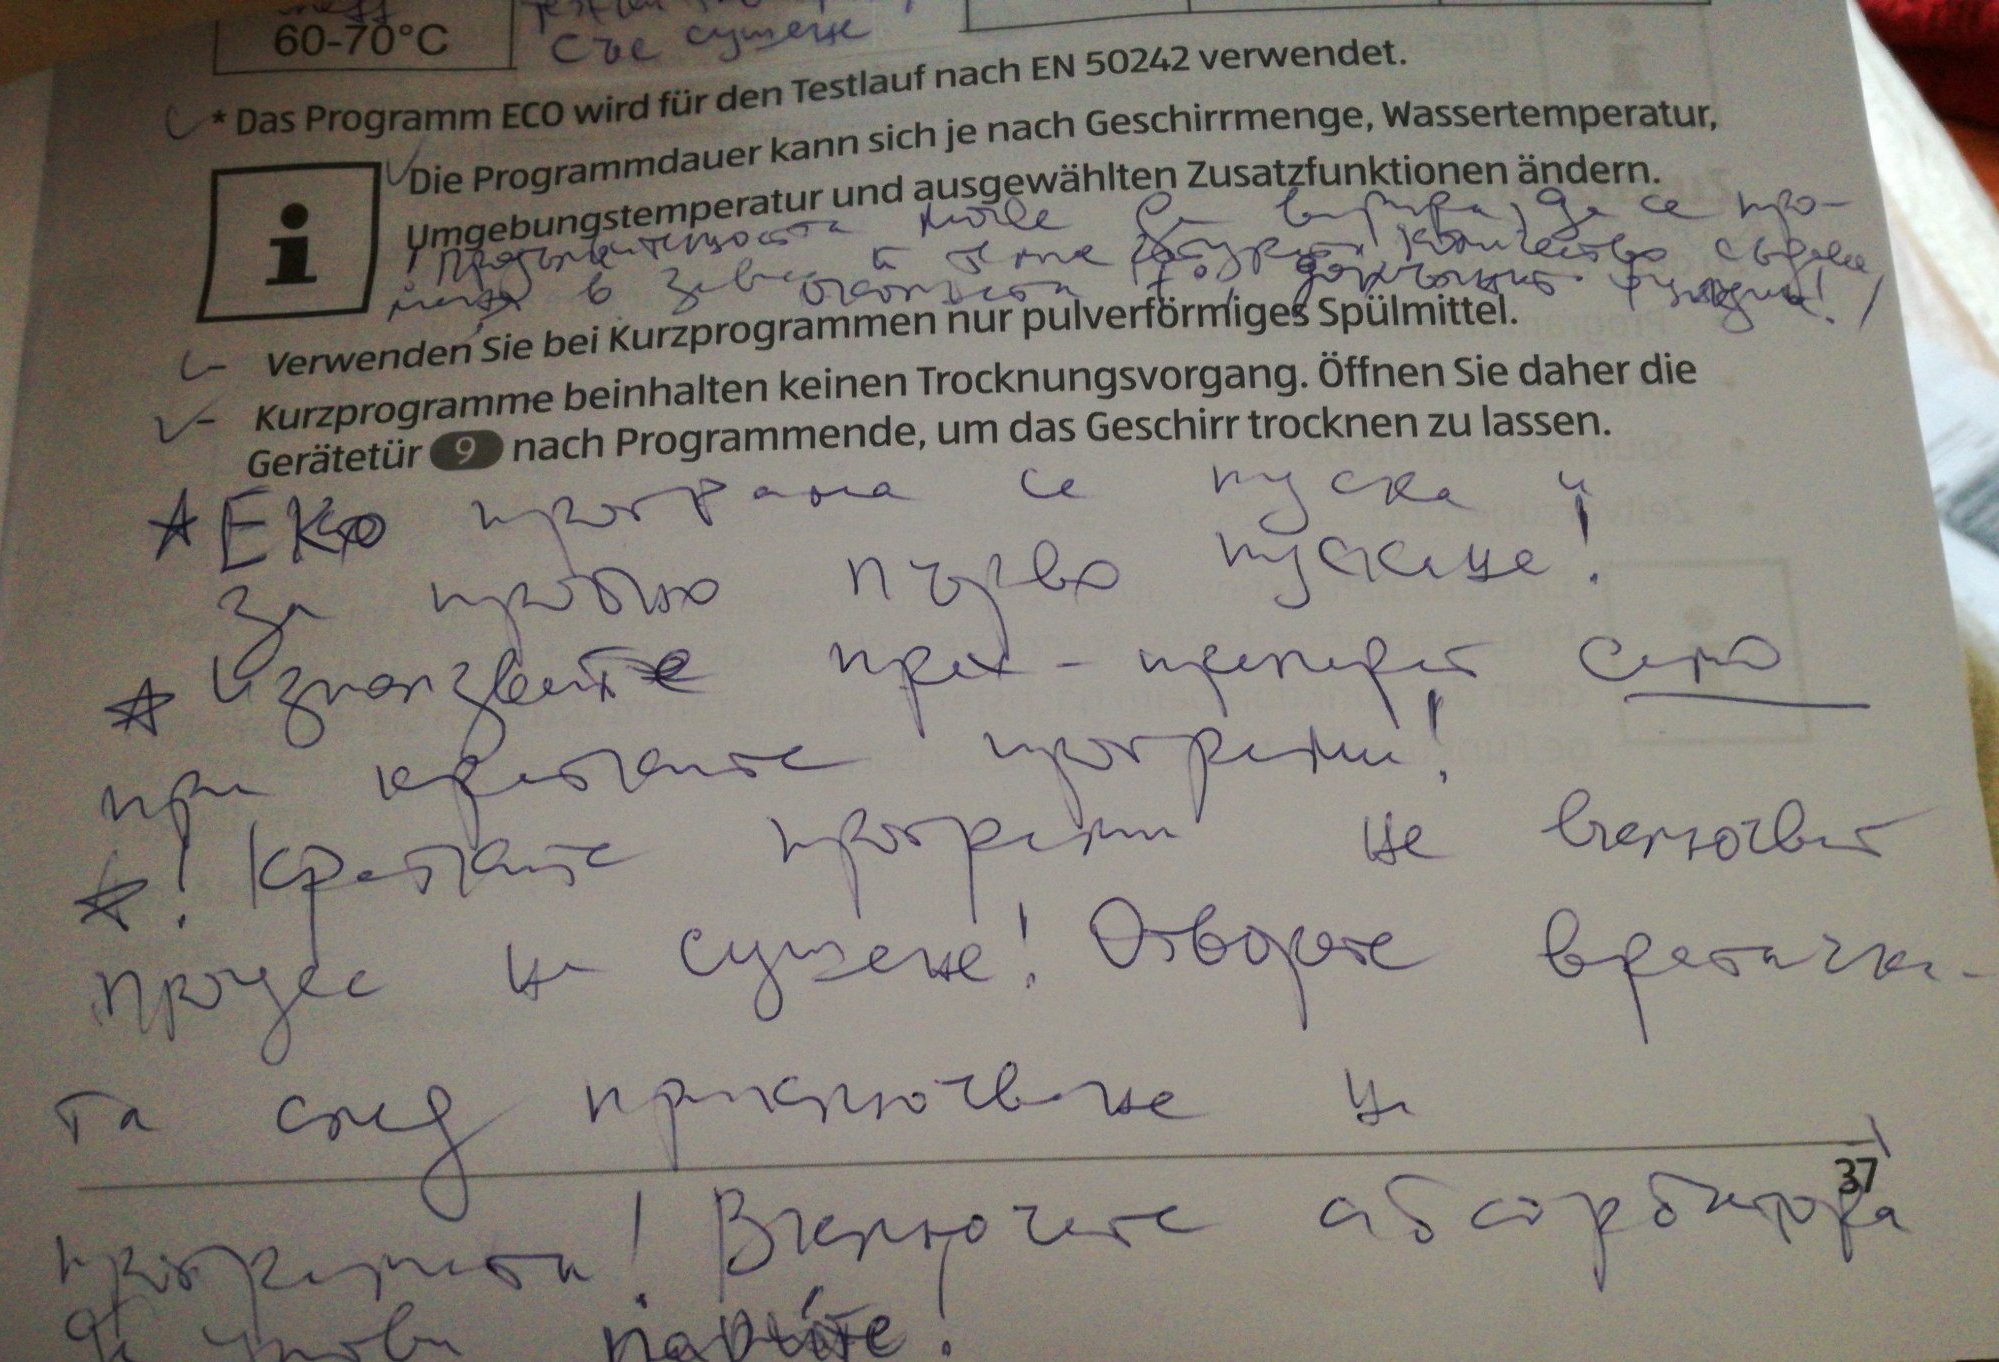 60-70°C
със сушене
* Das Programm ECO wird für den Testlauf nach EN 50242 verwendet.
Die Programmdauer kann sich je nach Geschirrmenge, Wassertemperatur,
Umgebungstemperatur und ausgewählten Zusatzfunktionen ändern.
! продължителността може да варира, да се про-
меня в
- Verwenden Sie bei Kurzprogrammen nur pulverförmiges Spülmittel.
- Kurzprogramme beinhalten keinen Trocknungsvorgang. Öffnen Sie daher die
Gerätetür 9 nach Programmende, um das Geschirr trocknen zu lassen.
ЕКО програма се пуска и
за пробно първо пускане!
Използвайте прах-препарат само
при кратките програми!
! Кратките програми не включват
процес на сушене! Отворете вратичка-
та след приключване на
37
програмата! Включете абсорбатора
да улови парите!